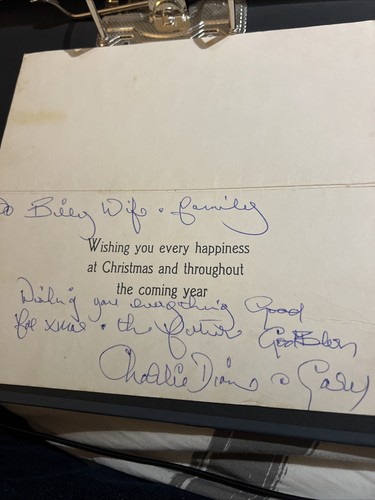 To Billy Wife & family
Wishing you every happiness
at Christmas and throughout
the coming year
Wishing you everything Good
for xmas & the future God Bless
Charlie Diane & Gary